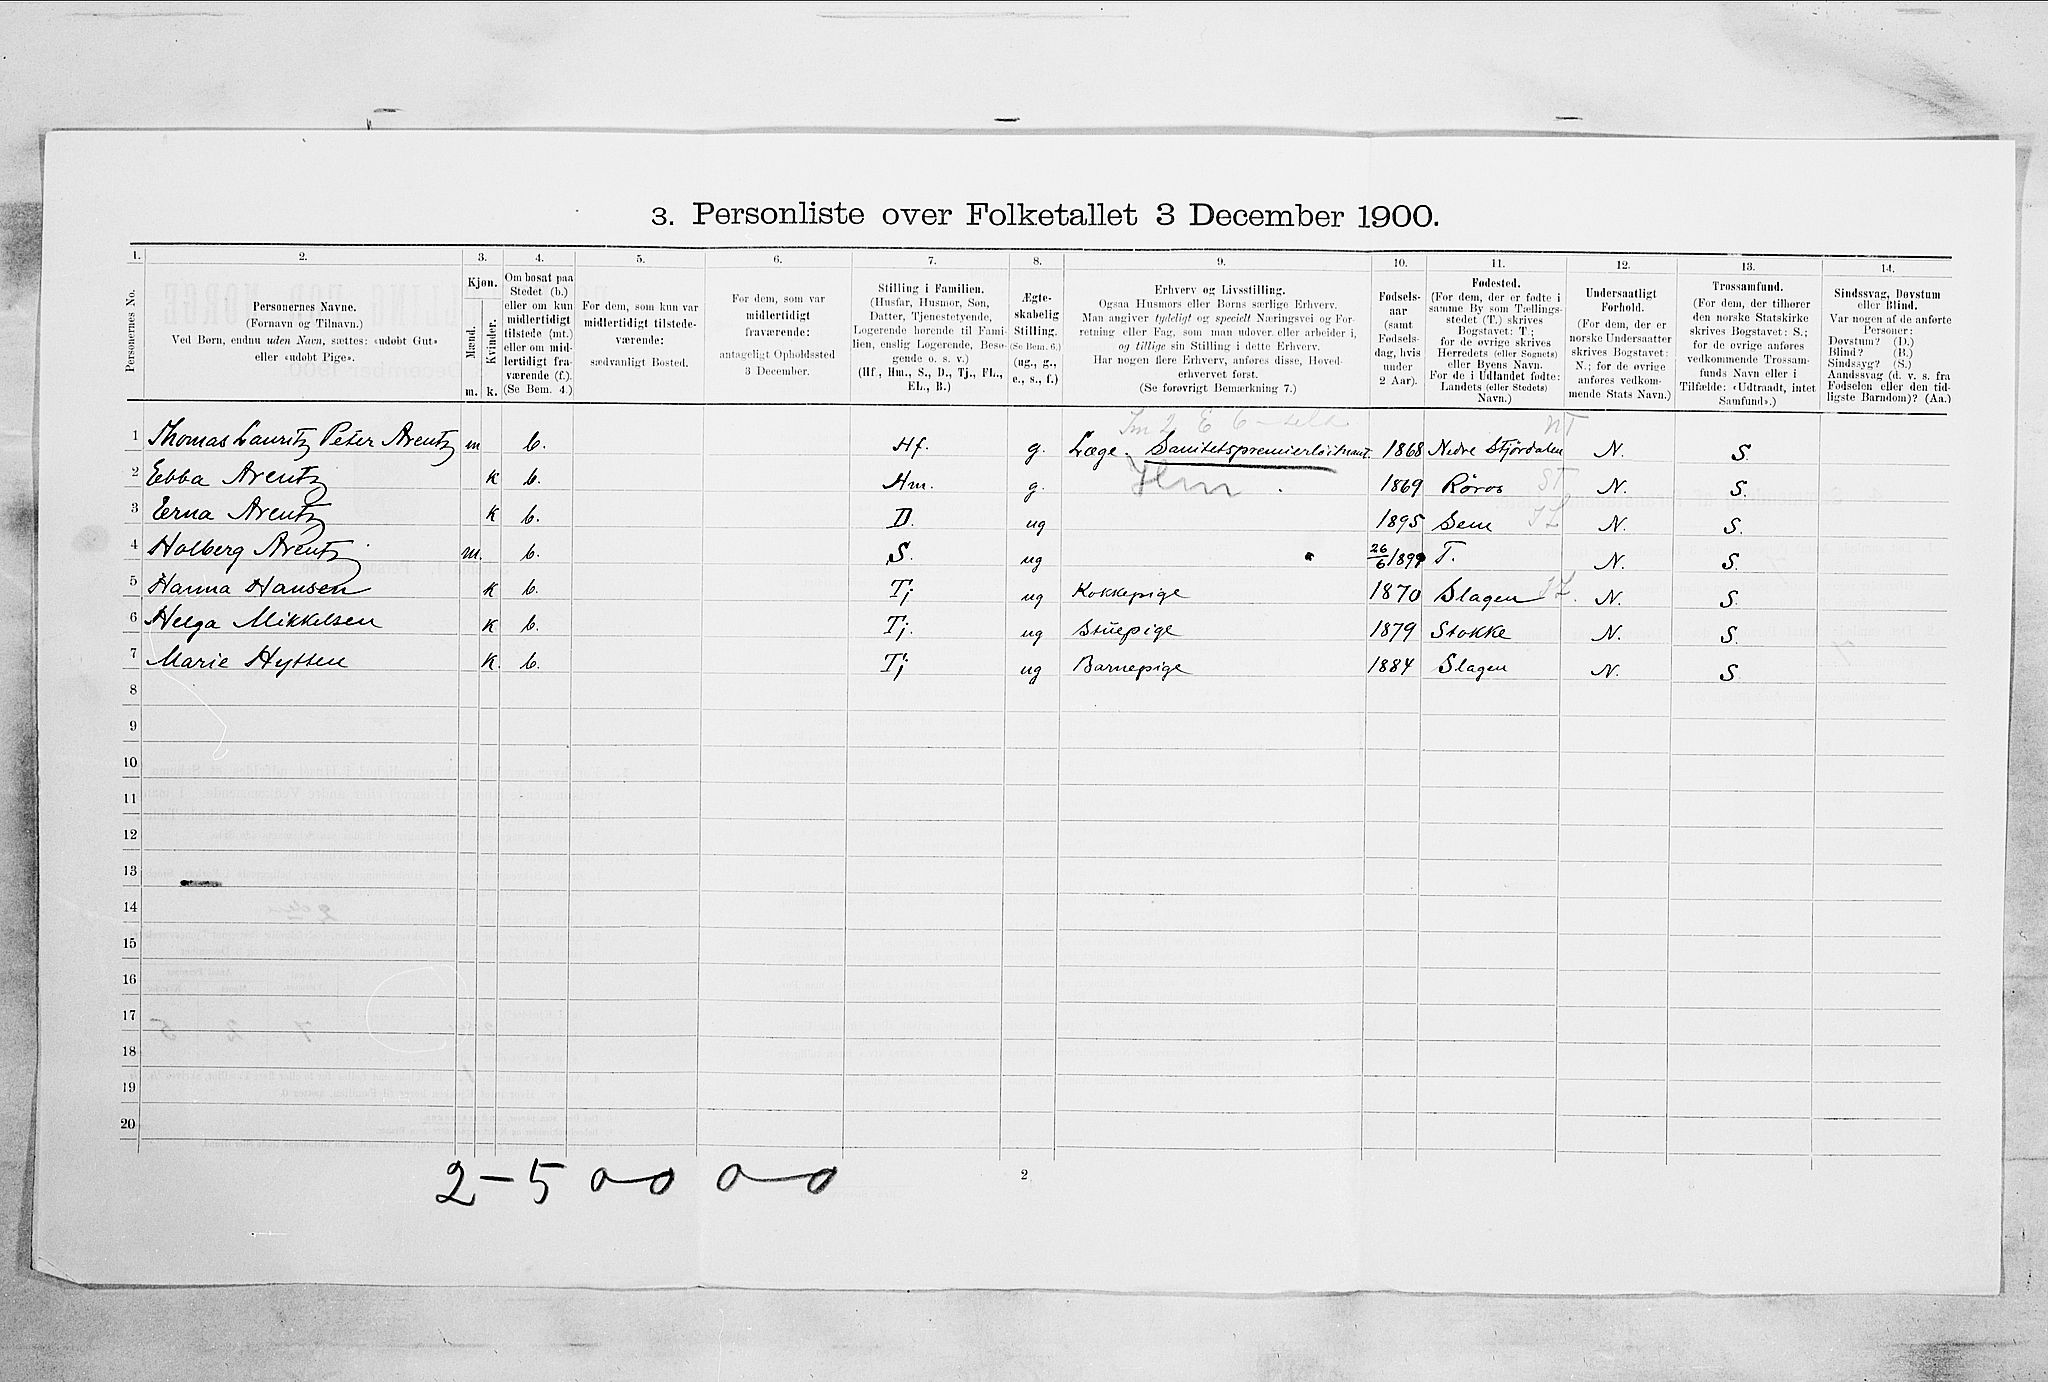 3. Personliste over Folketallet 3 December 1900.
1. 2. 3. 4. 5. 6. 7. 8. 9. 10. 11. 12. 13. 14.
Personernes No.
Personernes Navne.
(Fornavn og Tilnavn.)
Ved Børn, endnu uden Navn, sættes: «udøbt Gut»
eller «udøbt Pige».
Kjøn.
Mænd.
m.
Kvinder.
k.
Om bosat paa
Stedet (b.)
eller om kun
midlertidigt
tilstede (mt.)
eller om mid-
lertidigt fra-
værende (f.).
(Se Bem. 4.)
For dem, som kun var
midlertidigt tilstede-
værende:
sædvanligt Bosted.
For dem, som var
midlertidigt
fraværende:
antageligt Opholdssted
3 December.
Stilling i Familien.
(Husfar, Husmor, Søn,
Datter, Tjenestetyende,
Logerende hørende til Fami-
lien, enslig Logerende, Besø-
gende o. s. v.)
(Hf., Hm., S., D., Tj., FL.,
EL., B.)
Ægte-
skabelig
Stilling.
(Se Bem. 6.)
(ug., g.,
e., s., f.)
Erhverv og Livsstilling.
Ogsaa Husmors eller Børns særlige Erhverv.
Man angiver tydeligt og specielt Næringsvei og For-
retning eller Fag, som man udover eller arbeider i,
og tillige sin Stilling i dette Erhverv.
Har nogen flere Erhverv, anføres disse, Hoved-
erhvervet først.
(Se forøvrigt Bemærkning 7.)
Fødsels-
aar
(samt
Fødsels-
dag, hvis
under
2 Aar).
Fødested.
(For dem, der er fødte i
samme By som Tællings-
stedet (T.) skrives
Bogstavet: T.;
for de øvrige skrives
Herredets (eller Sognets)
eller Byens Navn.
For de i Udlandet fødte:
Landets (eller Stedets)
Navn.)
Undersaatligt
Forhold.
(For dem, der er
norske Undersaatter
skrives Bogstavet:
N.; for de øvrige
anføres vedkom-
mende Stats Navn.)
Trossamfund.
(For dem, der tilhører
den norske Statskirke
skrives Bogstavet: S.;
for de øvrige anføres
vedkommende Trossam-
funds Navn eller i
Tilfælde: «Udtraadt, intet
Samfund».)
Sindssvag, Døvstum
eller Blind.
Var nogen af de anførte
Personer:
Døvstum? (D.)
Blind? (B.)
Sindssyg? (S.)
Aandssvag (d. v. s. fra
Fødselen eller den tid-
ligste Barndom)? (Aa.)
NT
1 Thomas Lauritz Peter Arentz m b. Hf. g. Læge. Sanitetspremierløitnant 1868 Nedre Stjördalen N. S.
2 Ebba Arentz k b. Hm. g. 1869 Røros ST N. S.
3 Erna Arentz k b. D. ug 1895 Sem N. S.
4 Holberg Arentz m. b. S. ug 26/6 1899 T. N. S.
5 Hanna Hansen k b. Tj ug Kokkepige 1870 Slagen N. S.
6 Helga Mikkelsen k b. Tj. ug Stuepige 1879 Stokke N. S.
7 Marie Hytten k b. Tj ug Barnepige 1884 Slagen N. S.
8
9
10
11
12
13
14
15
16
17
18
19
20
2-5 0-0 0-0
2